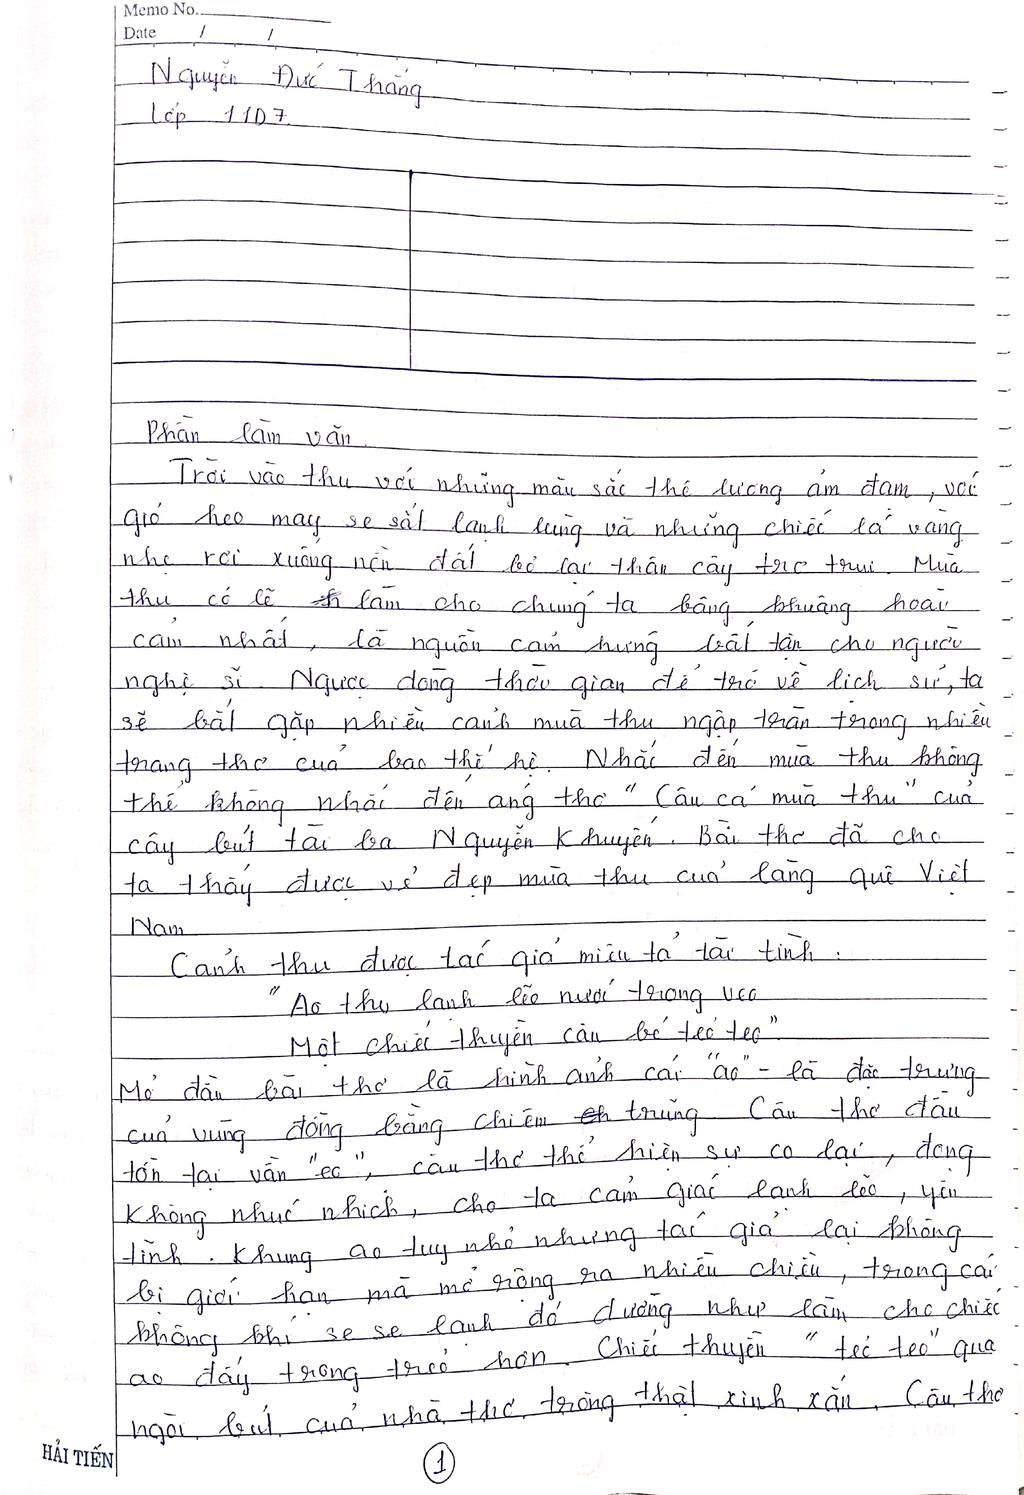 Memo No.
Date / /
Nguyễn Đức Thắng
Lớp 11D7
Phần làm văn
Trời vào thu với những màu sắc thê lương ảm đạm, với
gió heo may se sắt lạnh lùng và những chiếc lá vàng
nhẹ rơi xuống nền đất bỏ lại thân cây trơ trụi. Mùa
thu có lẽ làm cho chúng ta bâng khuâng hoài
cảm nhất, là nguồn cảm hứng bất tận cho người
nghệ sĩ. Ngược dòng thời gian để trở về lịch sử, ta
sẽ bắt gặp nhiều cảnh mùa thu ngập tràn trong nhiều
trang thơ của bao thế hệ. Nhắc đến mùa thu không
thể không nhắc đến áng thơ "Câu cá mùa thu" của
cây bút tài ba Nguyễn Khuyến. Bài thơ đã cho
ta thấy được vẻ đẹp mùa thu của làng quê Việt
Nam
Cảnh thu được tác giả miêu tả tài tình:
"Ao thu lạnh lẽo nước trong veo
Một chiếc thuyền câu bé tẻo teo"
Mở đầu bài thơ là hình ảnh cái "ao" - là đặc trưng
của vùng đồng bằng chiêm trũng Câu thơ đầu
tồn tại vần "eo", câu thơ thể hiện sự co lại, đọng
không nhúc nhích, cho ta cảm giác lạnh lẽo, yên
tĩnh. Khung ao tuy nhỏ nhưng tác giả lại không
bị giới hạn mà mở rộng ra nhiều chiều, trong cái
không khí se se lạnh đó dường như làm cho chiếc
ao đấy trong trẻo hơn. Chiếc thuyền "tẻo teo" qua
ngòi bút của nhà thơ trông thật xinh xắn. Câu thơ
HẢI TIẾN
1